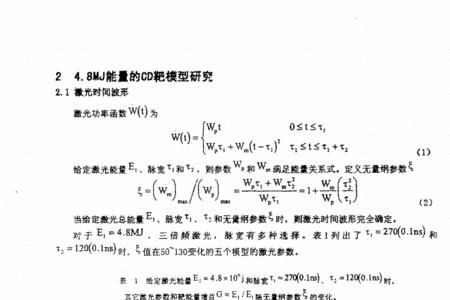 2 4.8MJ能量的CD靶模型研究
2.1 激光时间波形
激光功率函数W(t)为
W(t)={W_p t 0≤t≤τ₁
W_pτ₁+W_m(t-τ₁)² τ₁≤t≤τ₁+τ₂ (1)
给定激光能量E₁、脉宽τ₁和τ₂，则参数W_p和W_m满足能量关系式。定义无量纲参数ξ
ξ=(W_m)_max/(W_p)_max=(W_pτ₁+W_mτ₂²)/(W_pτ₁)=1+(W_m/W_p)(τ₂²/τ₁) (2)
当给定激光总能量E₁、脉宽τ₁、τ₂和无量纲参数ξ时，则激光时间波形完全确定。
对于E₁=4.8MJ，三倍频激光，脉宽有多种选择。表1列出了τ₁=270(0.1ns)和
τ₂=120(0.1ns)时，ξ值在50~130变化的五个模型的激光参数。
表 1 给定激光能量E₁=4.8×10⁶J和脉宽τ₁=270(0.1ns)、τ₂=120(0.1ns)时，
其它激光参数和靶能量增益G=E_f/E₁随无量纲参数ξ的变化。